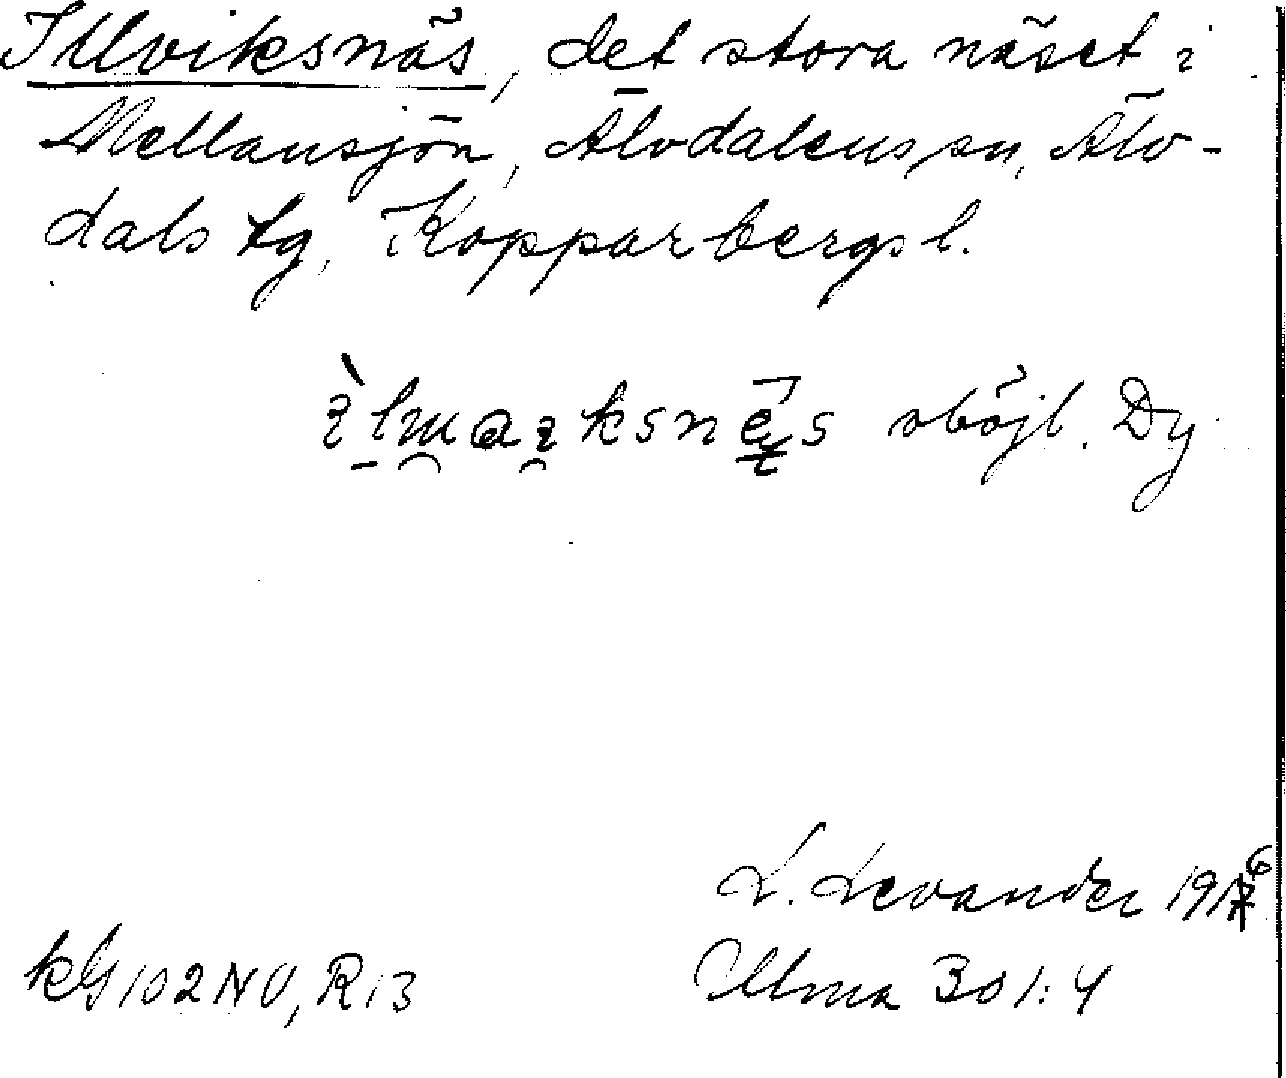 Illviksnäs, det stora näset i
Mellansjön, Älvdalens sn, Älv-
dals tg, Kopparbergs l.
sböjl. Dy
L. Levander 1916
kG 102 NV, R 13
Ulma 301:4